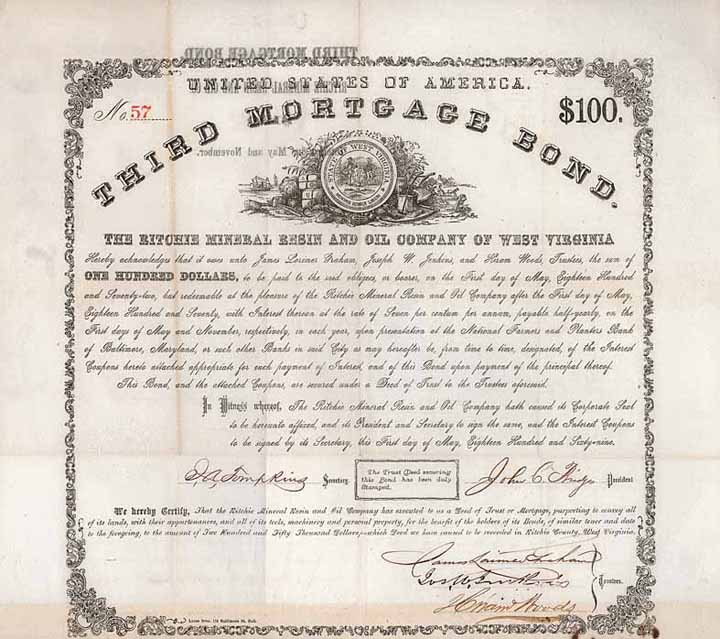 THIRD MORTGAGE BOND
UNITED STATES OF AMERICA.
No. 57
$100.
THIRD MORTGAGE BOND.
May and November.
STATE OF WEST VIRGINIA
THE RITCHIE MINERAL RESIN AND OIL COMPANY OF WEST VIRGINIA
Hereby acknowledges that it owes unto James Lorimer Graham, Joseph W. Jenkins, and Hiram Woods, Trustees, the sum of
ONE HUNDRED DOLLARS, to be paid to the said obligees, or bearer, on the First day of May, Eighteen Hundred
and Seventy-two, but redeemable at the pleasure of the Ritchie Mineral Resin and Oil Company after the First day of May,
Eighteen Hundred and Seventy, with Interest thereon at the rate of Seven per centum per annum, payable half-yearly, on the
First days of May and November, respectively, in each year, upon presentation at the National Farmers and Planters Bank
of Baltimore, Maryland, or such other Banks in said City as may hereafter be, from time to time, designated, of the Interest
Coupons hereto attached appropriate for each payment of Interest, and of this Bond upon payment of the principal thereof.
This Bond, and the attached Coupons, are secured under a Deed of Trust to the Trustees aforesaid.
In Witness whereof, The Ritchie Mineral Resin and Oil Company hath caused its Corporate Seal
to be hereunto affixed, and its President and Secretary to sign the same, and the Interest Coupons
to be signed by its Secretary, this First day of May, Eighteen Hundred and Sixty-nine.
Tompkins Secretary.
The Trust Deed securing
this Bond has been duly
Stamped.
John C. President
We hereby Certify, That the Ritchie Mineral Resin and Oil Company has executed to us a Deed of Trust or Mortgage, purporting to convey all
of its lands, with their appurtenances, and all of its tools, machinery and personal property, for the benefit of the holders of its Bonds, of similar tenor and date
to the foregoing, to the amount of Two Hundred and Fifty Thousand Dollars, which Deed we have caused to be recorded in Ritchie County, West Virginia.
James Lorimer Graham
Jos. W. Jenkins
Hiram Woods
Trustees.